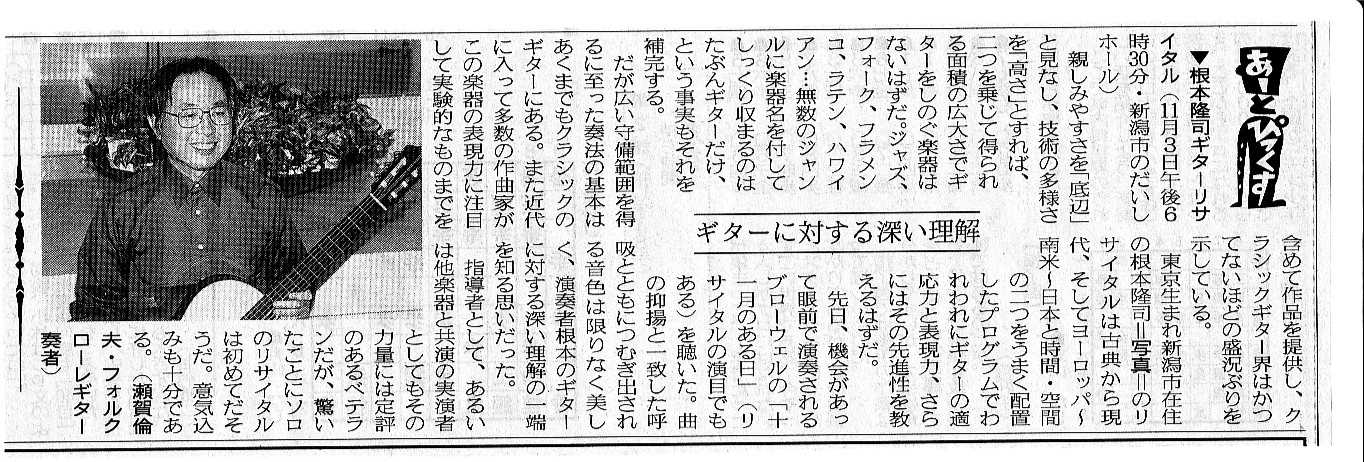 あーとぴっくす
▼根本隆司ギターリサ
イタル(11月3日午後6
時30分・新潟市のだいし
ホール)
親しみやすさを「底辺」
と見なし、技術の多様さ
を「高さ」とすれば、
二つを乗じて得られ
る面積の広大さでギ
ターをしのぐ楽器は
ないはずだ。ジャズ、
フォーク、フラメン
コ、ラテン、ハワイ
アン…無数のジャン
ルに楽器名を付して
しっくり収まるのは
たぶんギターだけ、
という事実もそれを
補完する。
だが広い守備範囲を得
るに至った奏法の基本は
あくまでもクラシックの
ギターにある。また近代
に入って多数の作曲家が
この楽器の表現力に注目
して実験的なものまでを
ギターに対する深い理解
含めて作品を提供し、ク
ラシックギター界はかつ
てないほどの盛況ぶりを
示している。
東京生まれ新潟市在住
の根本隆司＝写真＝のリ
サイタルは古典から現
代、そしてヨーロッパ～
南米～日本と時間・空間
の二つをうまく配置
したプログラムでわ
れわれにギターの適
応力と表現力、さら
にはその先進性を教
えるはずだ。
先日、機会があっ
て眼前で演奏される
ブローウェルの「十
一月のある日」(リ
サイタルの演目でも
ある)を聴いた。曲
の抑揚と一致した呼
吸とともにつむぎ出され
る音色は限りなく美し
く、演奏者根本のギター
に対する深い理解の一端
を知る思いだった。
指導者として、あるい
は他楽器と共演の実演者
としてもその
力量には定評
のあるベテラ
ンだが、驚い
たことにソロ
のリサイタル
は初めてだそ
うだ。意気込
みも十分であ
る。(瀬賀倫
夫・フォルク
ローレギター
奏者)